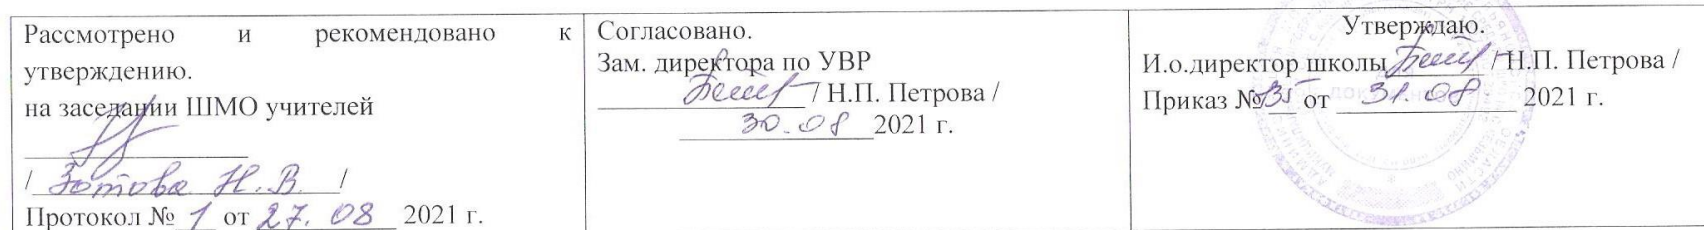 Рассмотрено и рекомендовано к
утверждению.
на заседании ШМО учителей
/ Зотова Н.В. /
Протокол № 1 от 27.08 2021 г.
Согласовано.
Зам. директора по УВР
/ Н.П. Петрова /
30.08 2021 г.
Утверждаю.
И.о.директор школы / Н.П. Петрова /
Приказ №35 от 31.08 2021 г.